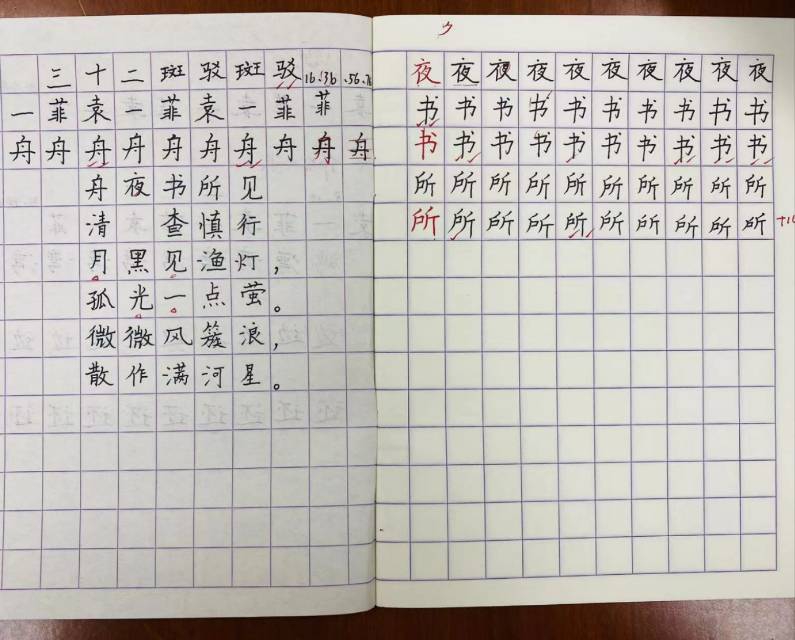 三十二斑驳斑驳16.36.56.76
一菲袁一菲袁一菲菲
舟舟舟舟舟舟舟舟舟舟
舟夜书所见
清 查慎行
月黑见渔灯，
孤光一点萤。
微微风簇浪，
散作满河星。
夜夜夜夜夜夜夜夜夜夜
书书书书书书书书书书
书书书书书书书书书书
所所所所所所所所所所
所所所所所所所所所所